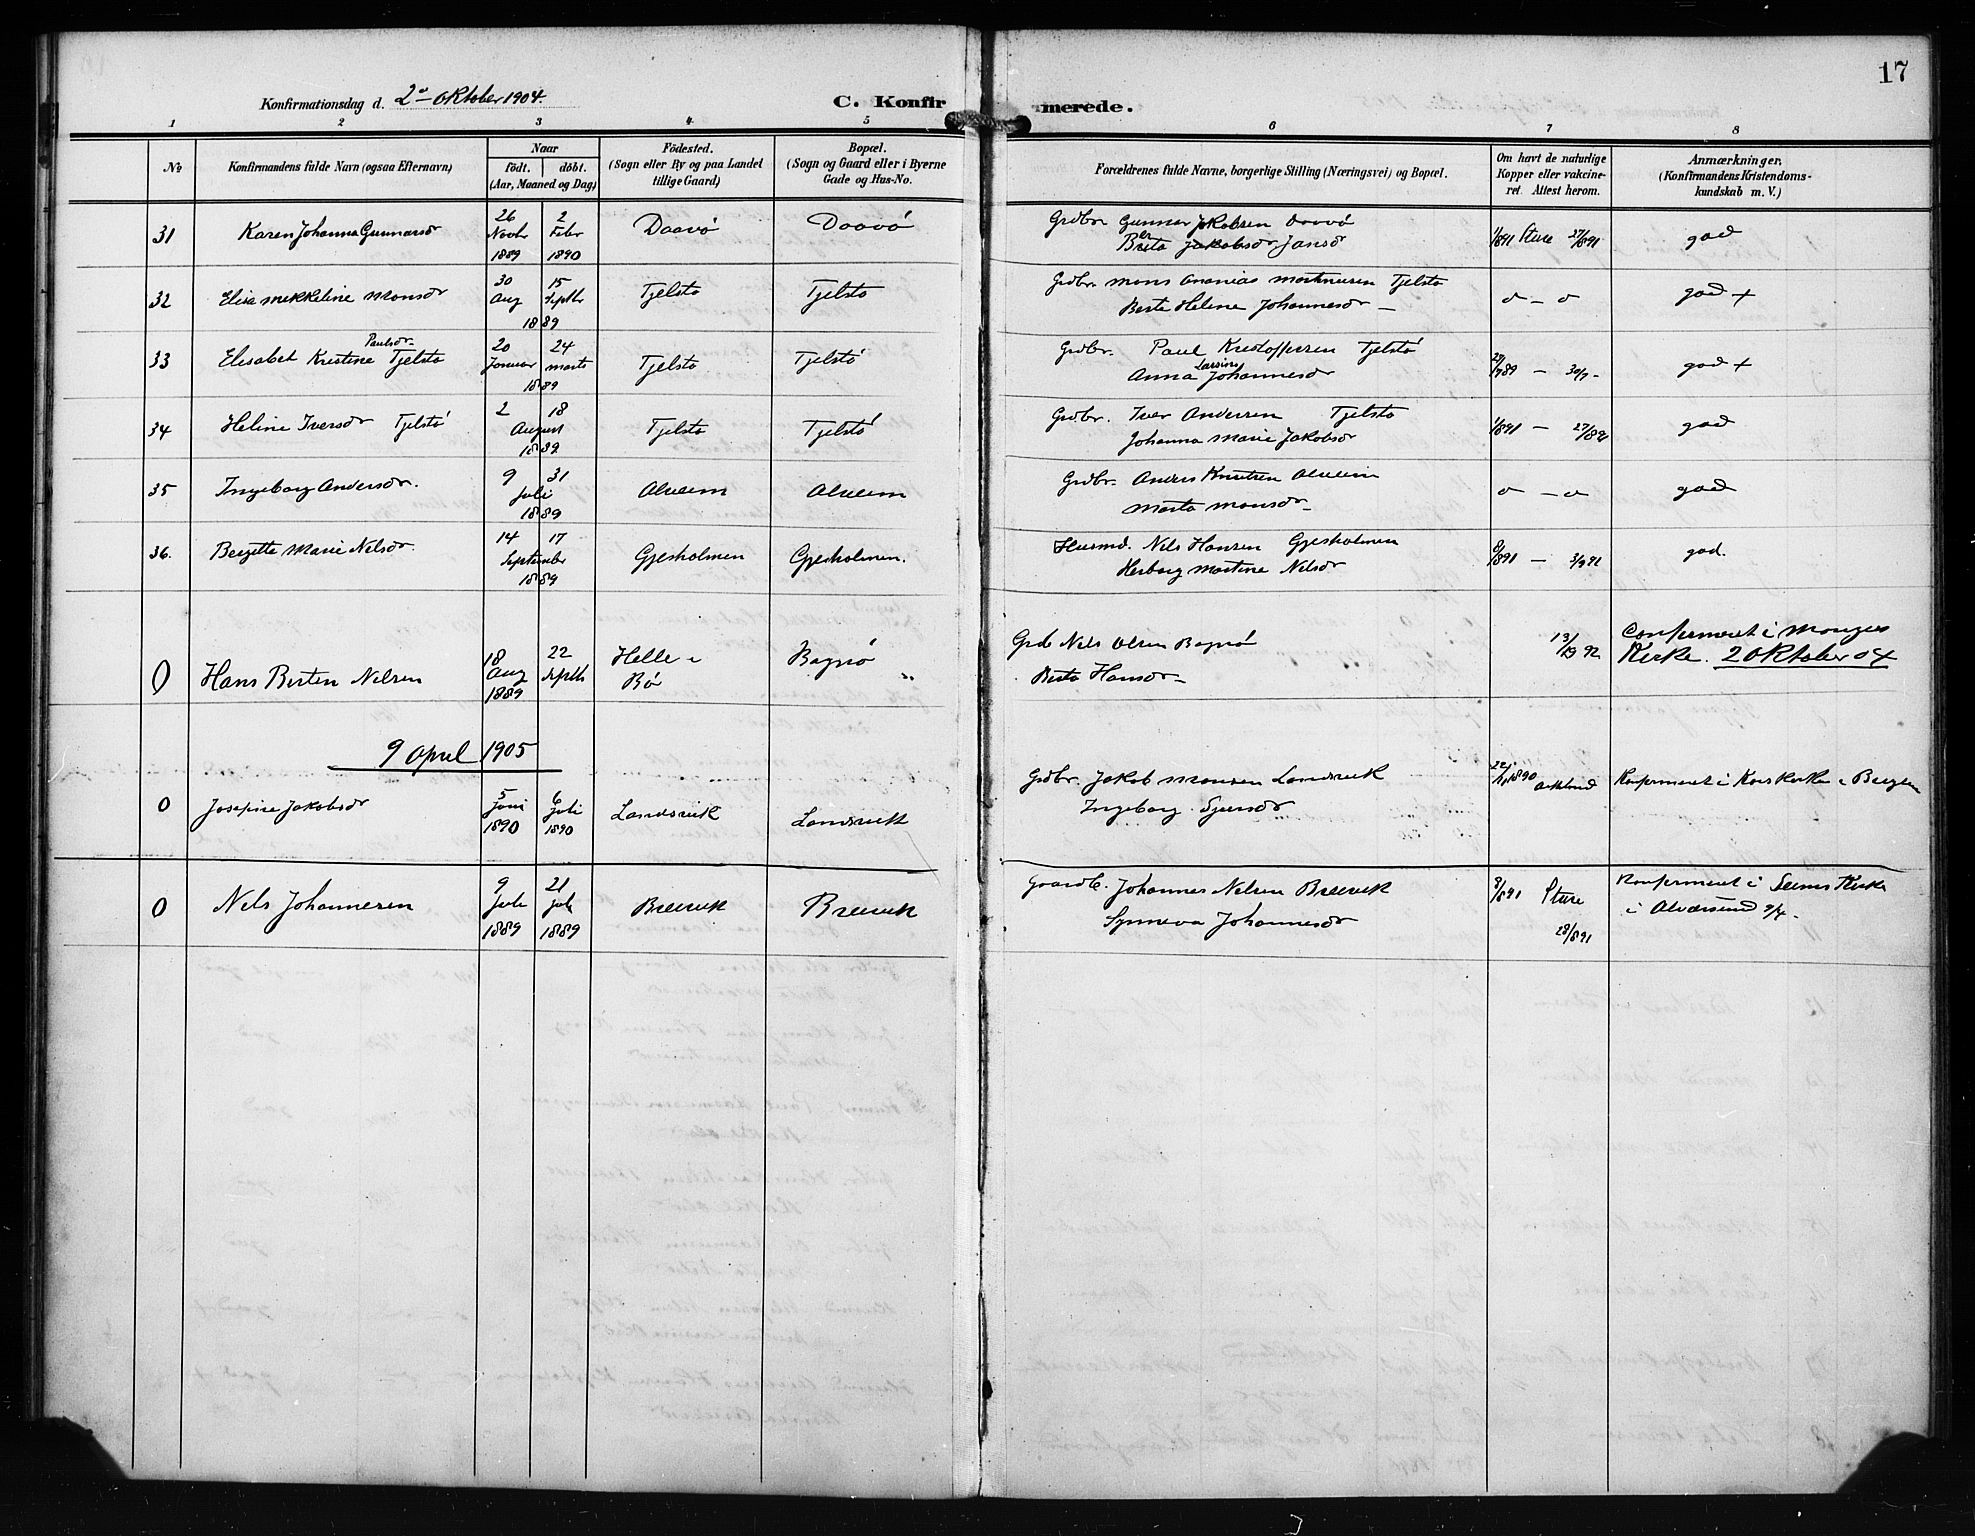 17
Konfirmationsdag d. 2den Oktober 1904.
C. Konfirmerede.
1 2 3 4 5 6 7 8
No
Konfirmandens fulde Navn (ogsaa Efternavn)
Naar
født. døbt.
(Aar, Maaned og Dag)
Fødested.
(Sogn eller By og paa Landet
tillige Gaard)
Bopæl.
(Sogn og Gaard eller i Byerne
Gade og Hus-No.
Forældrenes fulde Navne, borgerlige Stilling (Næringsvei) og Bopæl.
Om havt de naturlige
Kopper eller vakcine-
ret. Attest herom.
Anmærkninger,
(Konfirmandens Kristendoms-
kundskab m. V.)
31 Karen Johanna Gunnarsdr 26 Novbr 1889 2 Febr 1890 Daavø Daavø
Grdbr. Gunnar Jakobsen Daavø
Jansdr
1/891 Sture 27/891 god
32 Elisa Mikkeline Monsdr 30 Aug 15 Septbr 1889 Tjelstø Tjelstø
Grdbr. Mons Ananias Martinusen Tjelstø
Berte Helene Johannesdr —
o — o god +
33 Elisabet Kristine Paulsdr. Tjelstø 20 Januar 24 Marts 1889 Tjelstø Tjelstø
Grdbr. Paul Kristoffersen Tjelstø
Anna Larsine Johannesdr
29/789 — 30/7 - god +
34 Heline Iversdr Tjelstø 2 18 August 1889 Tjelstø Tjelstø
Grdbr. Iver Andersen Tjelstø
Johanna Marie Jakobsdr
1/891 — 27/891 god
35 Ingeborg Andersdr. 9 31 Juli 1889 Alveim Alveim
Grdbr. Anders Knutsen Alveim
Marta Monsdr —
o — o god
36. Bergitte Marie Nelsdr. 14 17 September 1889 Gjesholmen Gjesholmen.
Husmd. Nels Hansen Gjesholmen
Herborg Martine Nelsdr
8/891 — 3/991 god.
0 Hans Bertin Nelsen 18 Aug 1889 22 Septb Helle i Bø Bognø
Grdb Nels Olsen Bognø
Berta Hansdr —
13/19 92
Confirmeret i Manger
Kirke. 2 Oktober 04
9 April 1905
0 Josefine Jakobsdr 5 Juni 1890 6 Juli 1890 Landsvik Landsvik
Grdbr. Jakob Monsen Landsvik
Ingeborg Sjursdr
Konfirmeret i Korskirke i Bergen
0 Nels Johannesen 9 Juli 1889 21 Juli 1889 Breivik Breivik
Gaardb. Johannes Nelsen Breivik
Synneva Johannesdr
9/891 Sture
28/891
Konfirmeret i Seims Kirke
i Alværsund 9/4 -